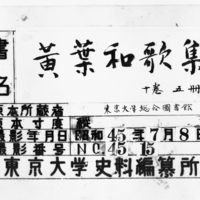 書名
黄葉和歌集
十巻 五冊
原本所蔵者 東京大学総合図書館
原本寸法 縦
撮影年月日 昭和45年7月8日
撮影番号 NO 45.15
東京大学史料編纂所